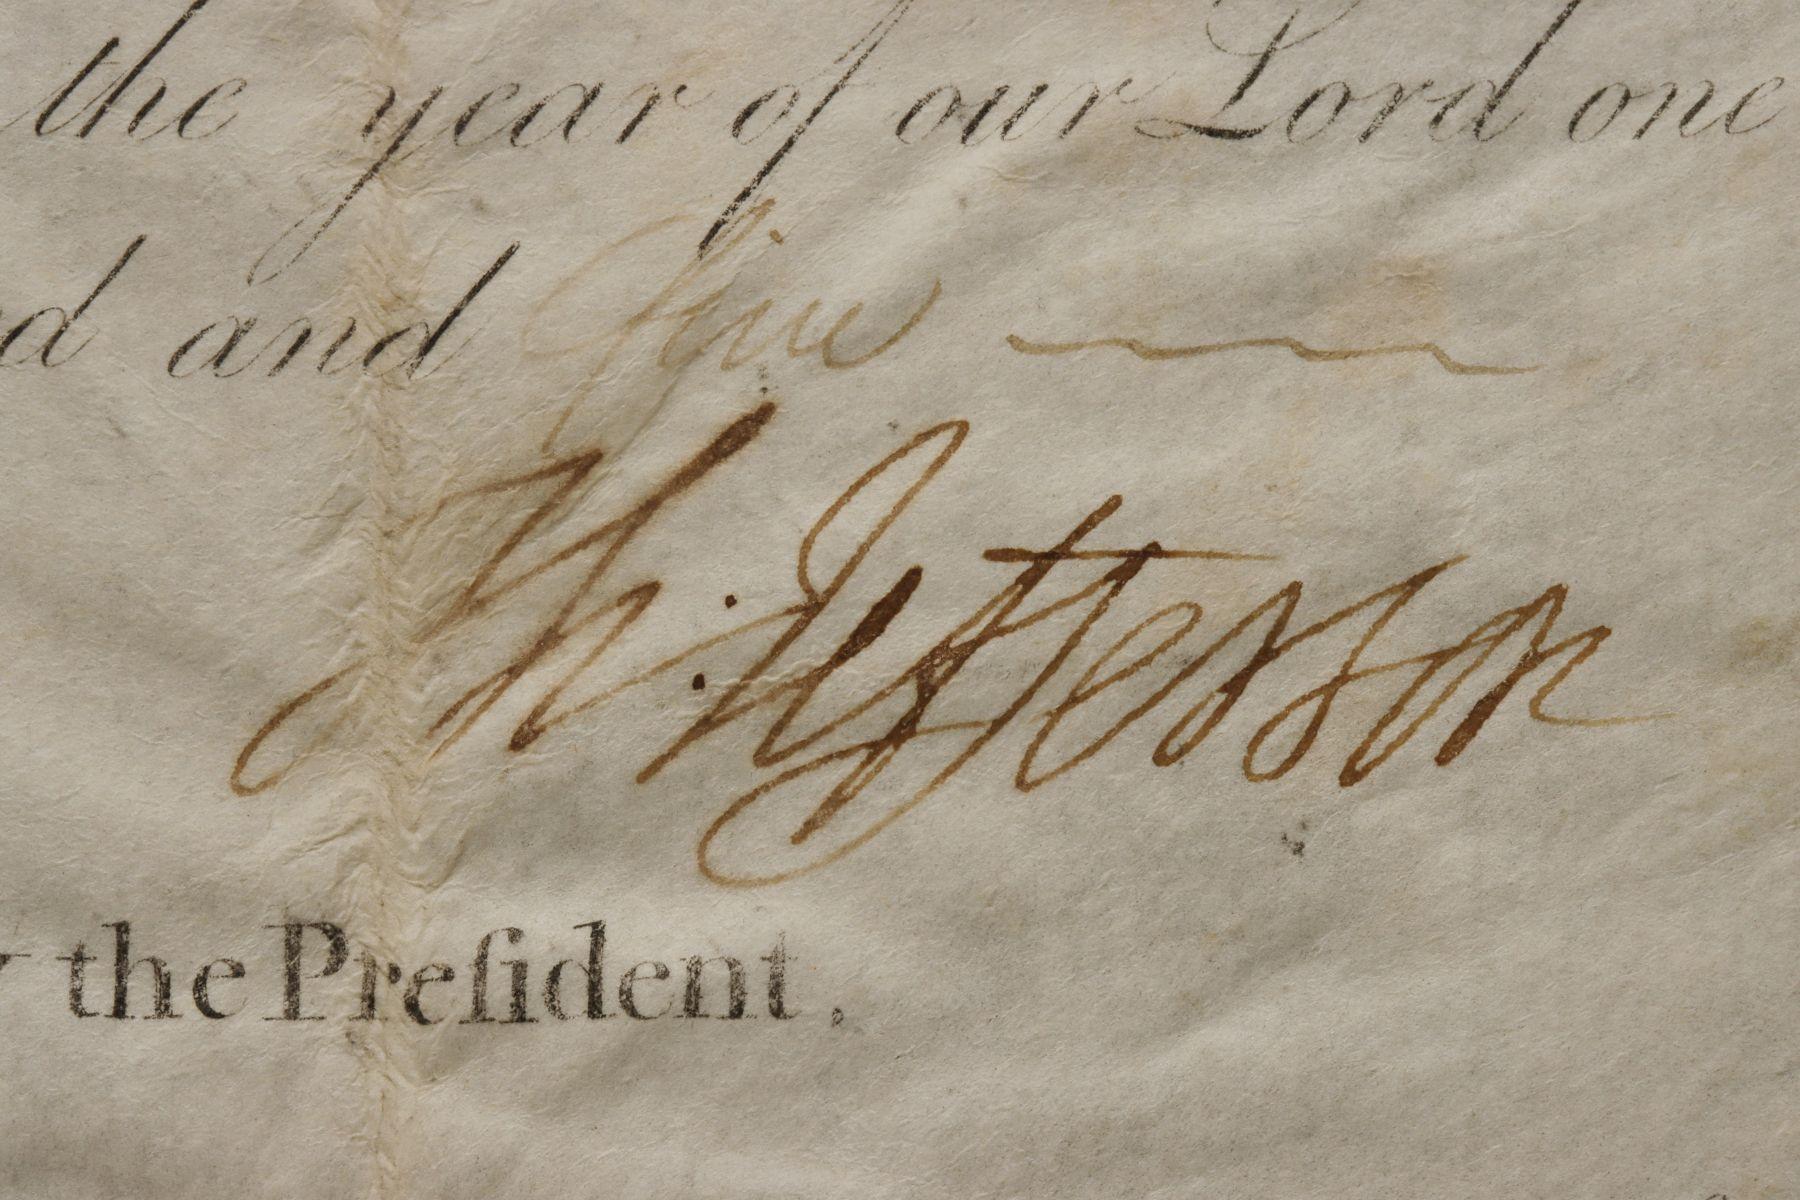 the year of our Lord one
d and five
Th: Jefferson
the Preſident.